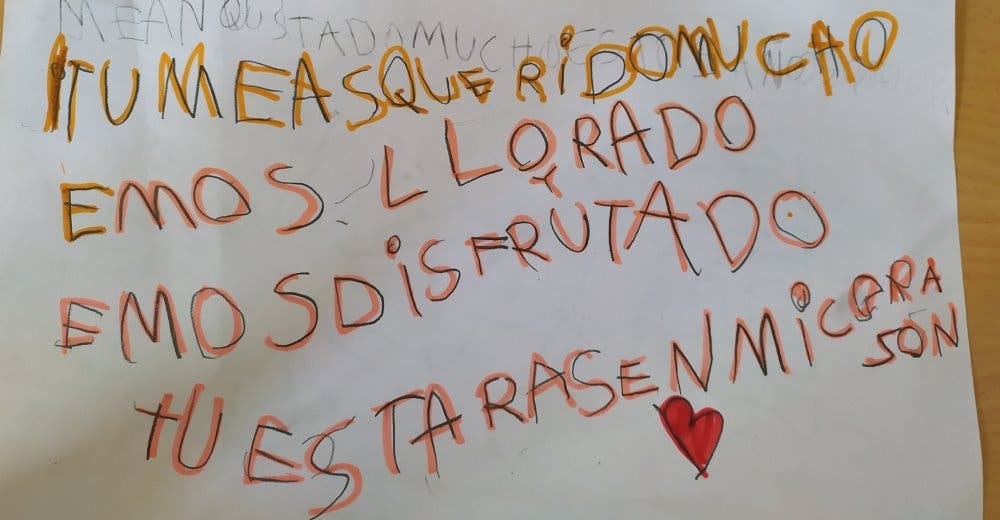 MEANGUSTADAMUCHO
TUMEASQUERiDOMUCHO
EMOS LLORADO
Y
EMOSDiSFRUTADO
TUESTARASENMiCORA
SON